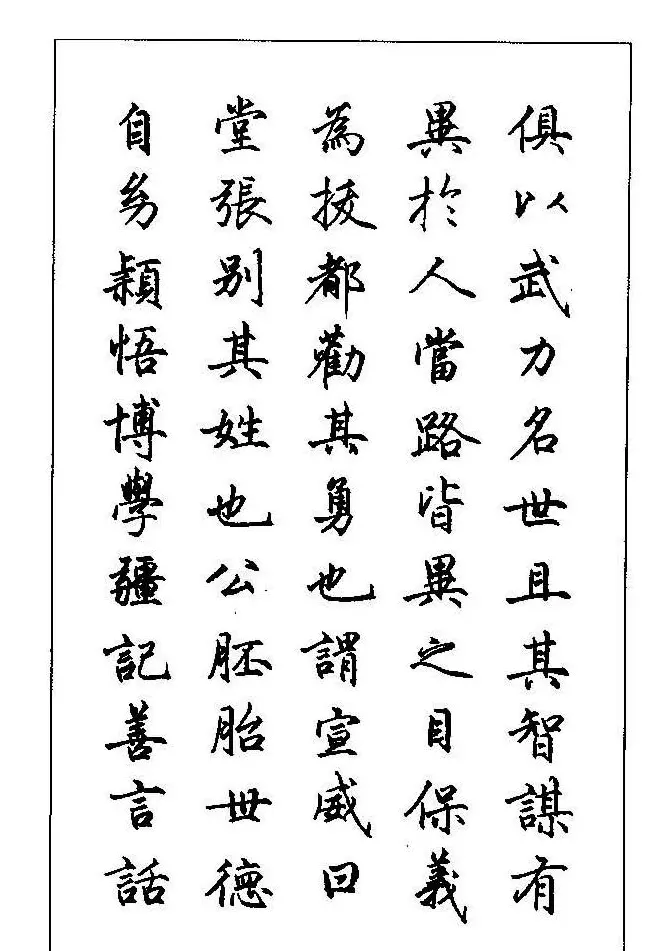 俱以武力名世且其智謀有
異於人當路皆異之目保義
為拔都勸其勇也謂宣威曰
堂張別其姓也公胚胎世德
自㓜穎悟博學疆記善言話